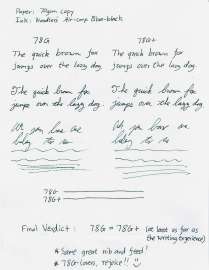 Paper: 70gsm copy
Ink: Noodlers Air-corp Blue-black
78G 78G+
The quick brown fox The quick brown fox
jumps over the lazy dog jumps over the lazy dog
The quick brown fox The quick brown fox
jumps over the lazy dog jumps over the lazy dog.
78G
78G+
Final Verdict: 78G = 78G+ (at least as far as
the writing experience)
* Same great nib and feed!
* 78G-lovers, rejoice!!